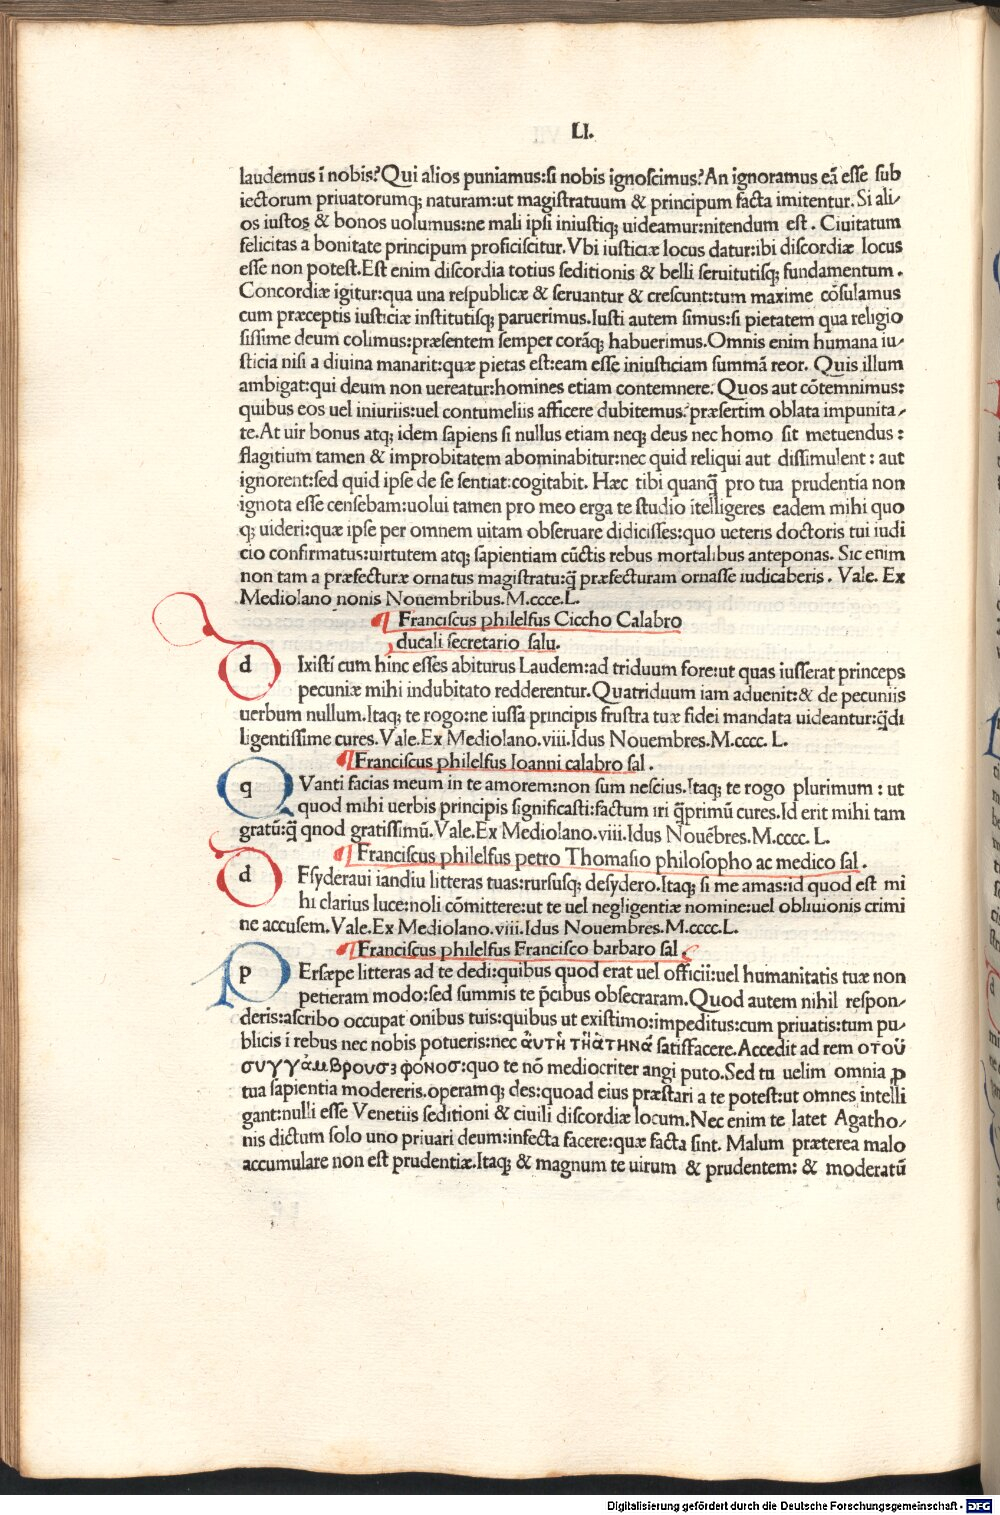 LI.
laudemus ī nobis? Qui alios puniamus: si nobis ignoscimus? An ignoramus eā esse sub
iectorum priuatorumq; naturam: ut magistratuum & principum facta imitentur. Si ali-
os iustos & bonos uolumus: ne mali ipsi iniustiq; uideamur: nitendum est. Ciuitatum
felicitas a bonitate principum proficiscitur. Vbi iusticiæ locus datur: ibi discordiæ locus
esse non potest. Est enim discordia totius seditionis & belli seruitutisq; fundamentum.
Concordiæ igitur: qua una respublicæ & seruantur & crescunt: tum maxime cōsulamus
cum præceptis iusticiæ institutisq; paruerimus. Iusti autem simus: si pietatem qua religio
sissime deum colimus: præsentem semper corāq; habuerimus. Omnis enim humana iu-
sticia nisi a diuina manarit: quæ pietas est: eam esse iniusticiam summā reor. Quis illum
ambigat: qui deum non uereatur: homines etiam contemnere. Quos aut cōtemnimus:
quibus eos uel iniuriis: uel contumeliis afficere dubitemus? præsertim oblata impunita-
te. At uir bonus atq; idem sapiens si nullus etiam neq; deus nec homo sit metuendus:
flagitium tamen & improbitatem abominabitur: nec quid reliqui aut dissimulent: aut
ignorent: sed quid ipse de se sentiat: cogitabit. Hæc tibi quanq̄ pro tua prudentia non
ignota esse censebam: uolui tamen pro meo erga te studio itelligeres eadem mihi quo
q; uideri: quæ ipse per omnem uitam obseruare didicisses: quo ueteris doctoris tui iudi
cio confirmatus: uirtutem atq; sapientiam cūctis rebus mortalibus anteponas. Sic enim
non tam a præfecturæ ornatus magistratu: q̄ præfecturam ornasse iudicaberis. Vale. Ex
Mediolano nonis Nouembribus. M.cccc.L.
¶ Franciscus philelfus Ciccho Calabro
ducali secretario salu.
d Ixisti cum hinc esses abiturus Laudem: ad triduum fore: ut quas iusserat princeps
pecuniæ mihi indubitato redderentur. Quatriduum iam aduenit: & de pecuniis
uerbum nullum. Itaq; te rogo: ne iussa principis frustra tuæ fidei mandata uideantur: q̄di
ligentissime cures. Vale. Ex Mediolano. viii. Idus Nouembres. M.cccc. L.
¶ Franciscus philelfus Ioanni calabro sal.
q Vanti facias meum in te amorem: non sum nescius. Itaq; te rogo plurimum: ut
quod mihi uerbis principis significasti: factum iri q̄primū cures. Id erit mihi tam
gratū: q̄ qnod gratissimū. Vale. Ex Mediolano. viii. Idus Nouēbres. M.cccc. L.
¶ Franciscus philelfus petro Thomasio philosopho ac medico sal.
d Esyderaui iandiu litteras tuas: rursusq; desydero. Itaq; si me amas: id quod est mi
hi clarius luce: noli cōmittere: ut te uel negligentiæ nomine: uel obliuionis crimi
ne accusem. Vale. Ex Mediolano. viii. Idus Nouembres. M.cccc.L.
¶ Franciscus philelfus Francisco barbaro sal
p Ersæpe litteras ad te dedi: quibus quod erat uel officii: uel humanitatis tuæ non
petieram modo: sed summis te p̄cibus obsecraram. Quod autem nihil respon-
deris: ascribo occupat onibus tuis: quibus ut existimo: impeditus: cum priuatis: tum pu-
blicis ī rebus nec nobis potueris: nec ἀυτῆ τῆ ἀτηνᾶ satisfacere. Accedit ad rem ο τοῦ
συγγἀμβρουσ φόνοσ: quo te nō mediocriter angi puto. Sed tu uelim omnia ꝑ
tua sapientia modereris. operamq; des: quoad eius præstari a te potest: ut omnes intelli
gant: nulli esse Venetiis seditioni & ciuili discordiæ locum. Nec enim te latet Agatho-
nis dictum solo uno priuari deum: infecta facere: quæ facta sint. Malum præterea malo
accumulare non est prudentiæ. Itaq; & magnum te uirum & prudentem: & moderatū
Digitalisierung gefördert durch die Deutsche Forschungsgemeinschaft - DFG